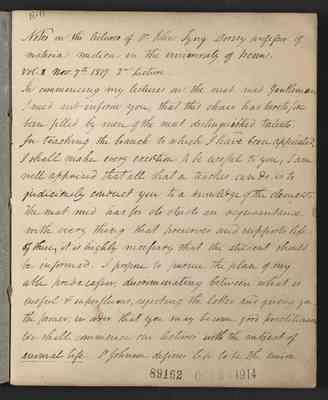 Notes on the lectures of Dr John Syng Dorsey professor of
materia medica in the university of Penn.
Vol. 1 Nov. 7th 1817 2nd Lecture.
In commencing my lectures on the mat. med. Gentlemen
I need not inform you, that this chair has heretofore
been filled by men of the most distinguished talents.
In teaching the branch to which I have been appointed,
I shall make every exertion to be useful to you, I am
well apprised that all that a teacher can do is to
judiciously conduct you to a knowledge of the elements.
The mat. med. has for its objects an acquaintance
with every thing that preserves and supports life.
Of these, it is highly necessary that the student should
be informed. I propose to pursue the plan of my
able predecessor, discriminating between what is
useful & superfluous, rejecting the latter and giving you
the former, in order that you may become good practitioners
we shall commence our lectures with the subject of
animal life. Dr Johnson defines life to be the union
89162 1914